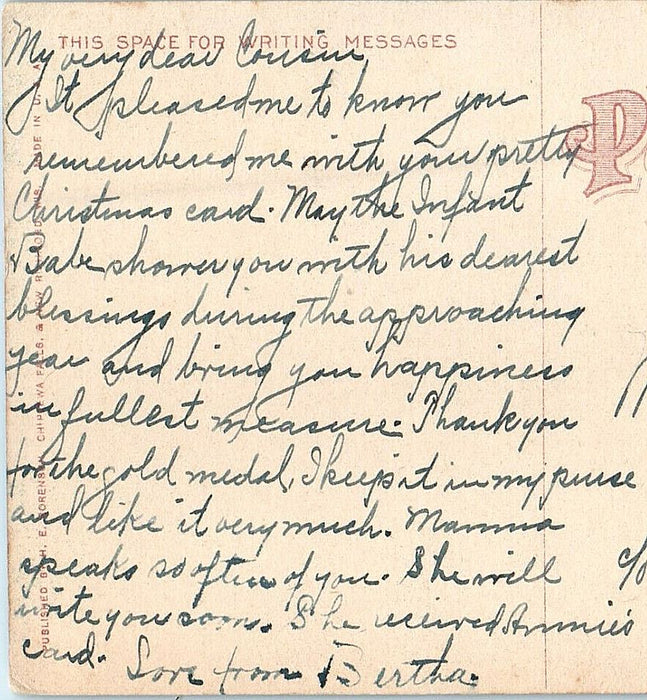 THIS SPACE FOR WRITING MESSAGES
My very dear Cousin,
It pleased me to know you
remembered me with your pretty
Christmas card. May the Infant
Babe shower you with his dearest
blessings during the approaching
year and bring you happiness
in fullest measure. Thank you
for the gold medal, I keep it in my purse
and like it very much. Mamma
speaks so often of you. She will
write you soon. She received Annie's
card.
Love from Bertha.
PUBLISHED BY H. E. SORENSEN, CHIPPEWA FALLS, & NEW RICHMOND, WIS. MADE IN U. S. A.
P
c/o